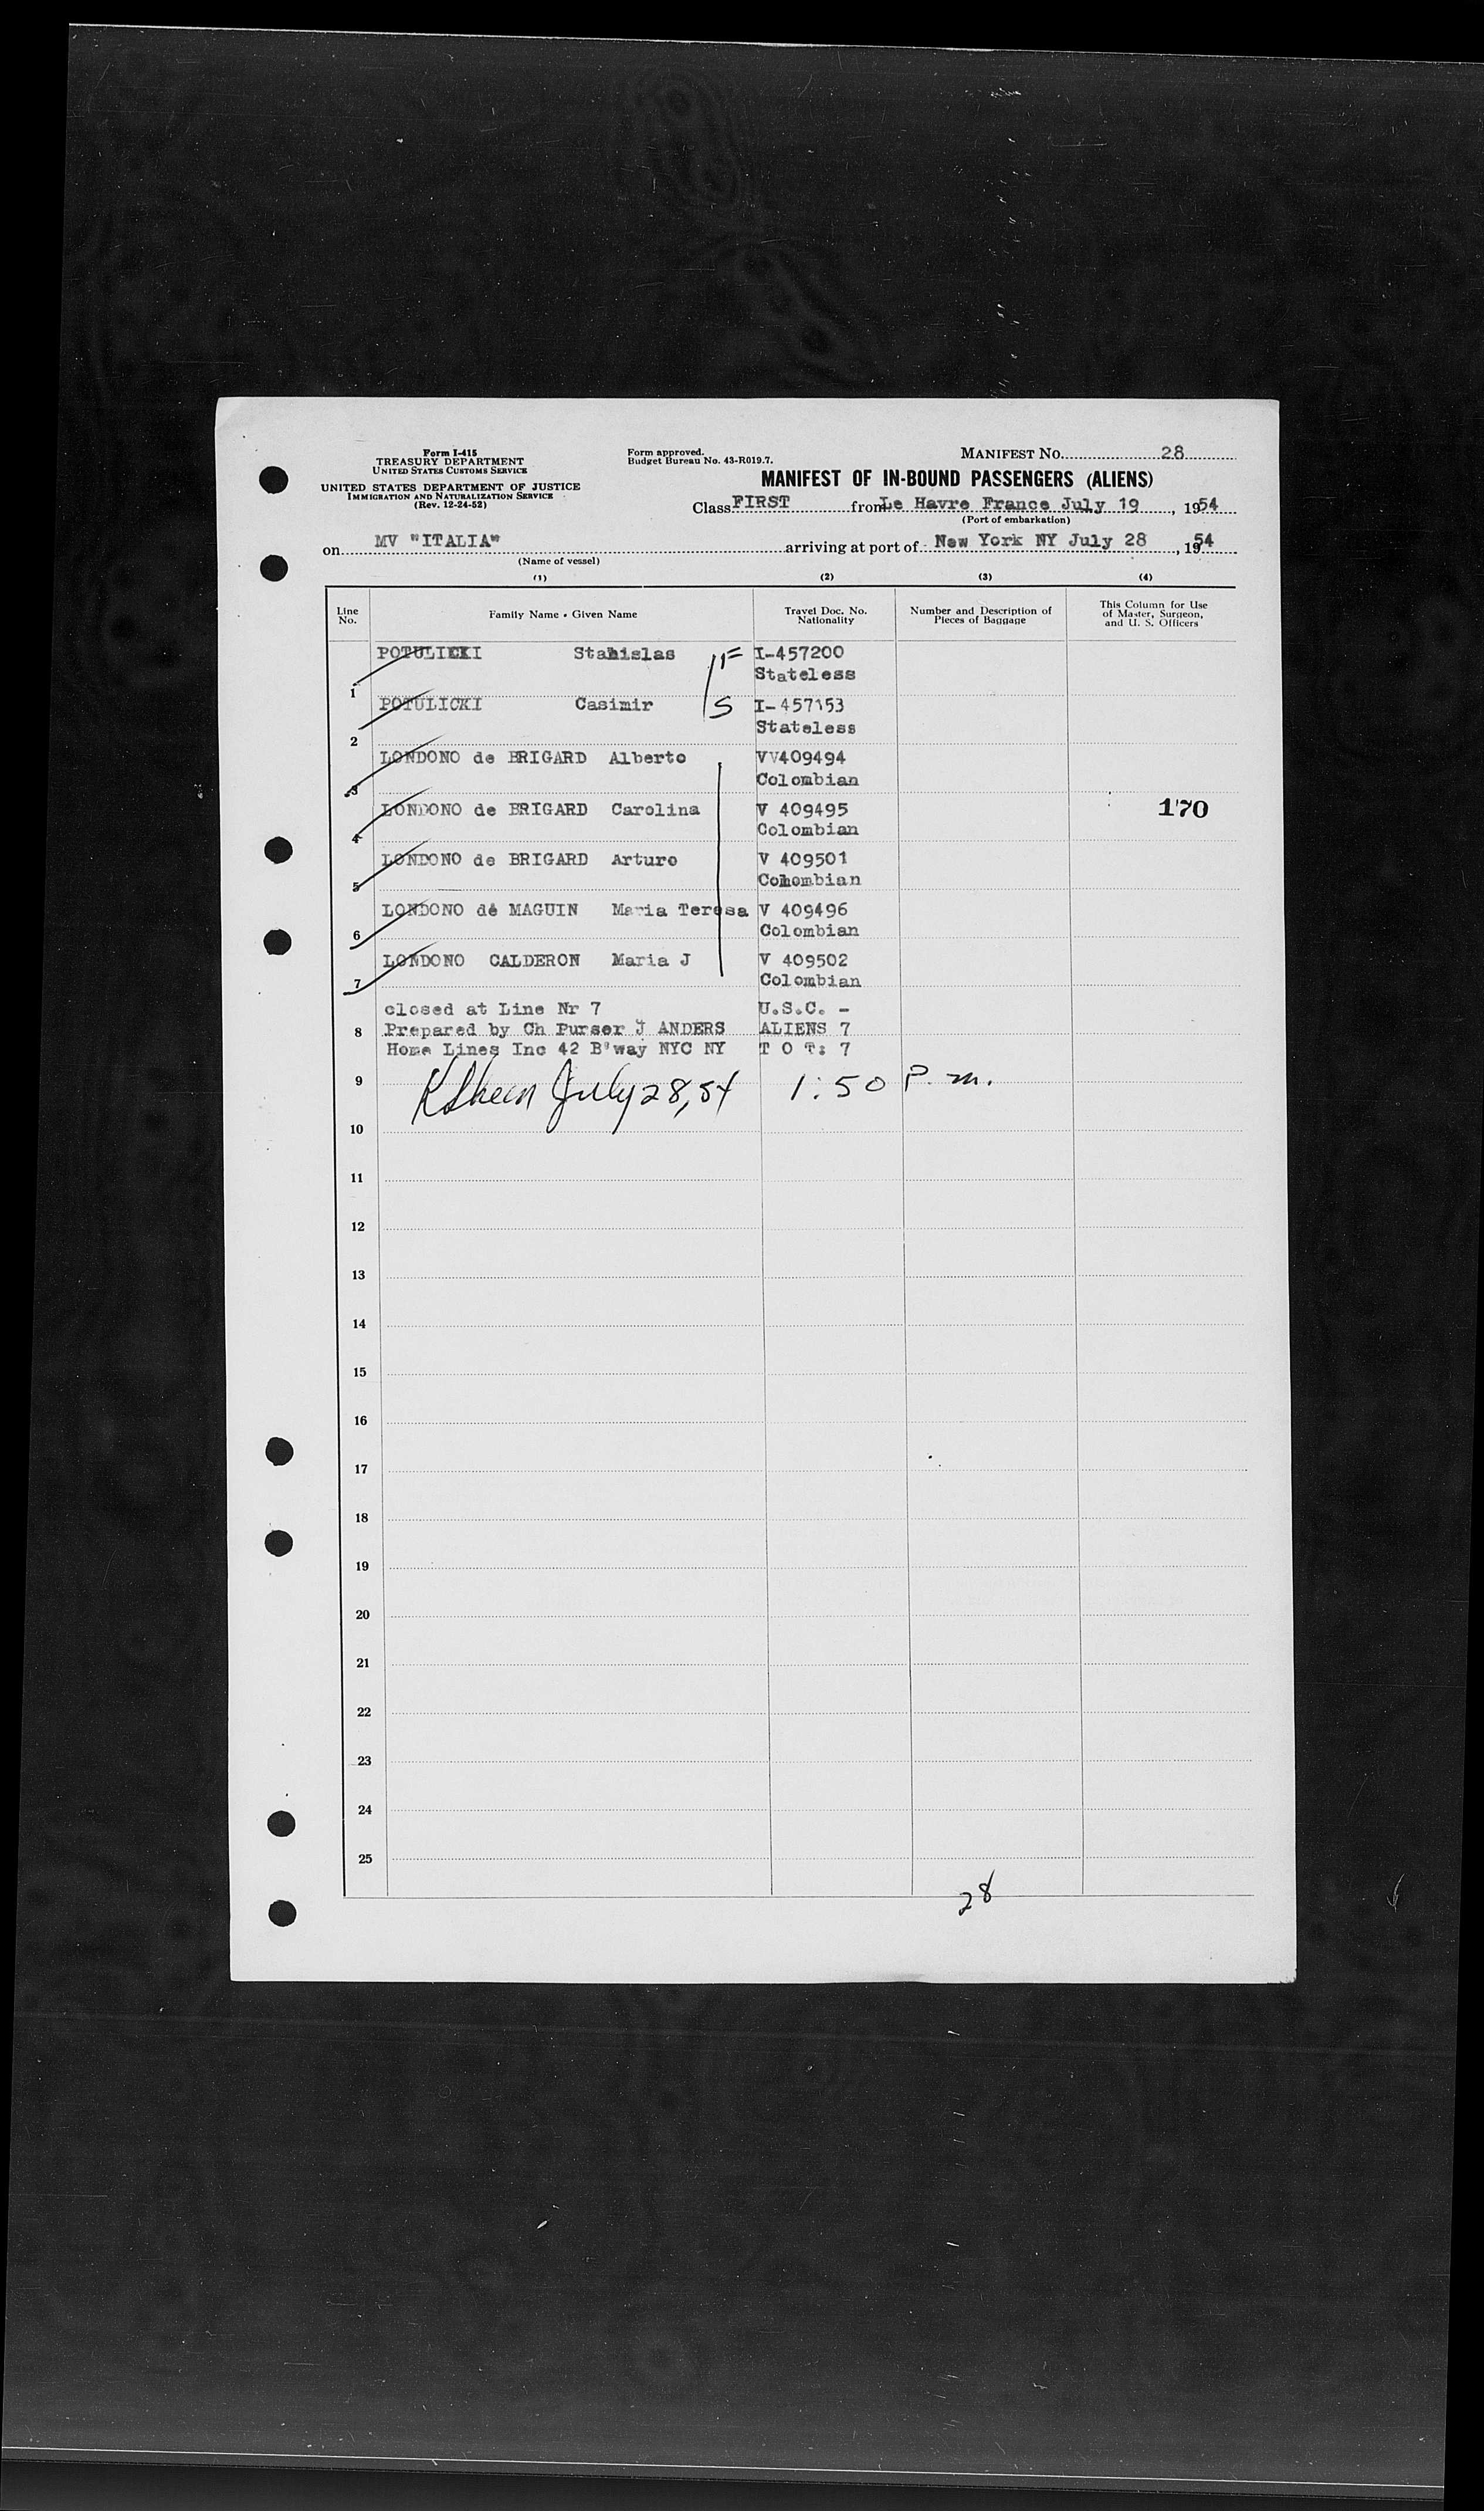 Form I-415
TREASURY DEPARTMENT
UNITED STATES CUSTOMS SERVICE
UNITED STATES DEPARTMENT OF JUSTICE
IMMIGRATION AND NATURALIZATION SERVICE
(Rev. 12-24-52)
Form approved.
Budget Bureau No. 43-R019.7.
MANIFEST No. 28
MANIFEST OF IN-BOUND PASSENGERS (ALIENS)
Class FIRST from Le Havre France July 19, 1954
(Port of embarkation)
on MV "ITALIA" arriving at port of New York NY July 28, 1954
(Name of vessel)
(1) (2) (3) (4)
Line No. Family Name - Given Name Travel Doc. No. Nationality Number and Description of Pieces of Baggage This Column for Use of Master, Surgeon, and U. S. Officers
1 POTULICKI Stanislas F I-457200
Stateless
2 POTULICKI Casimir S I-457153
Stateless
3 LONDONO de BRIGARD Alberto VV409494
Colombian
4 LONDONO de BRIGARD Carolina V 409495 170
Colombian
5 LONDONO de BRIGARD Arturo V 409501
Colombian
6 LONDONO de MAGUIN Maria Teresa V 409496
Colombian
7 LONDONO CALDERON Maria J V 409502
Colombian
closed at Line Nr 7 U.S.C. -
8 Prepared by Ch Purser J ANDERS ALIENS 7
Home Lines Inc 42 B'way NYC NY T O T: 7
9 July 28, 54 1:50 P.m.
10
11
12
13
14
15
16
17
18
19
20
21
22
23
24
25
28